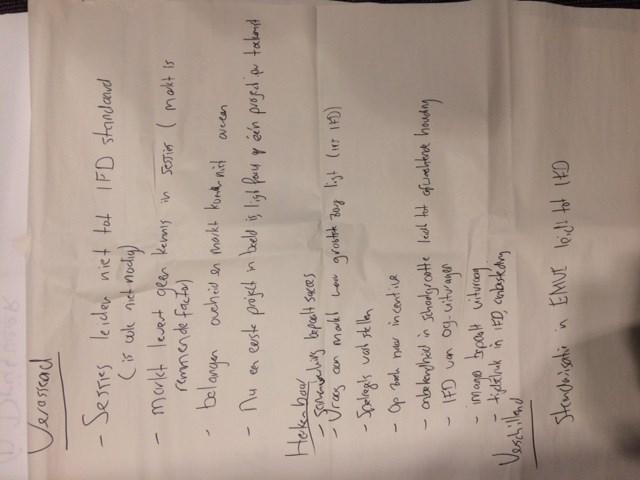 Verrassend
- Sessies leiden niet tot IFD standaard
(is ook niet nodig)
- markt levert geen kennis in sessies (markt is
remmende factor)
- belangen overheid en markt komen niet overeen
- Nu en eerste project in beeld is, ligt focus op één project ipv toekomst
Herkenbaar
- Samenwerking bepaalt succes
- Vraag aan markt waar grootste zorg ligt (irt IFD)
- Spelregels vaststellen
- Op zoek naar incentive
- onbekendheid in schaalgrootte leidt tot afwachtende houding
- IFD van OG-uitvragen
- imago bepaalt uitvraag
- tijdsdruk in IFD, aanbesteding
Verschillend
Standaardisatie in EMVI leidt tot IFD